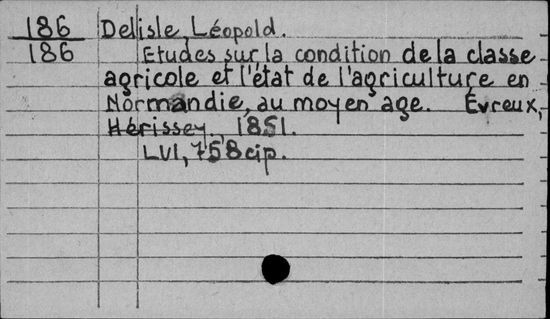 186 Delisle, Léopold.
186 Etudes sur la condition de la classe
agricole et l'état de l'agriculture en
Normandie, au moyen age. Évreux,
Hérissey, 1851.
LVI, 758 cip.